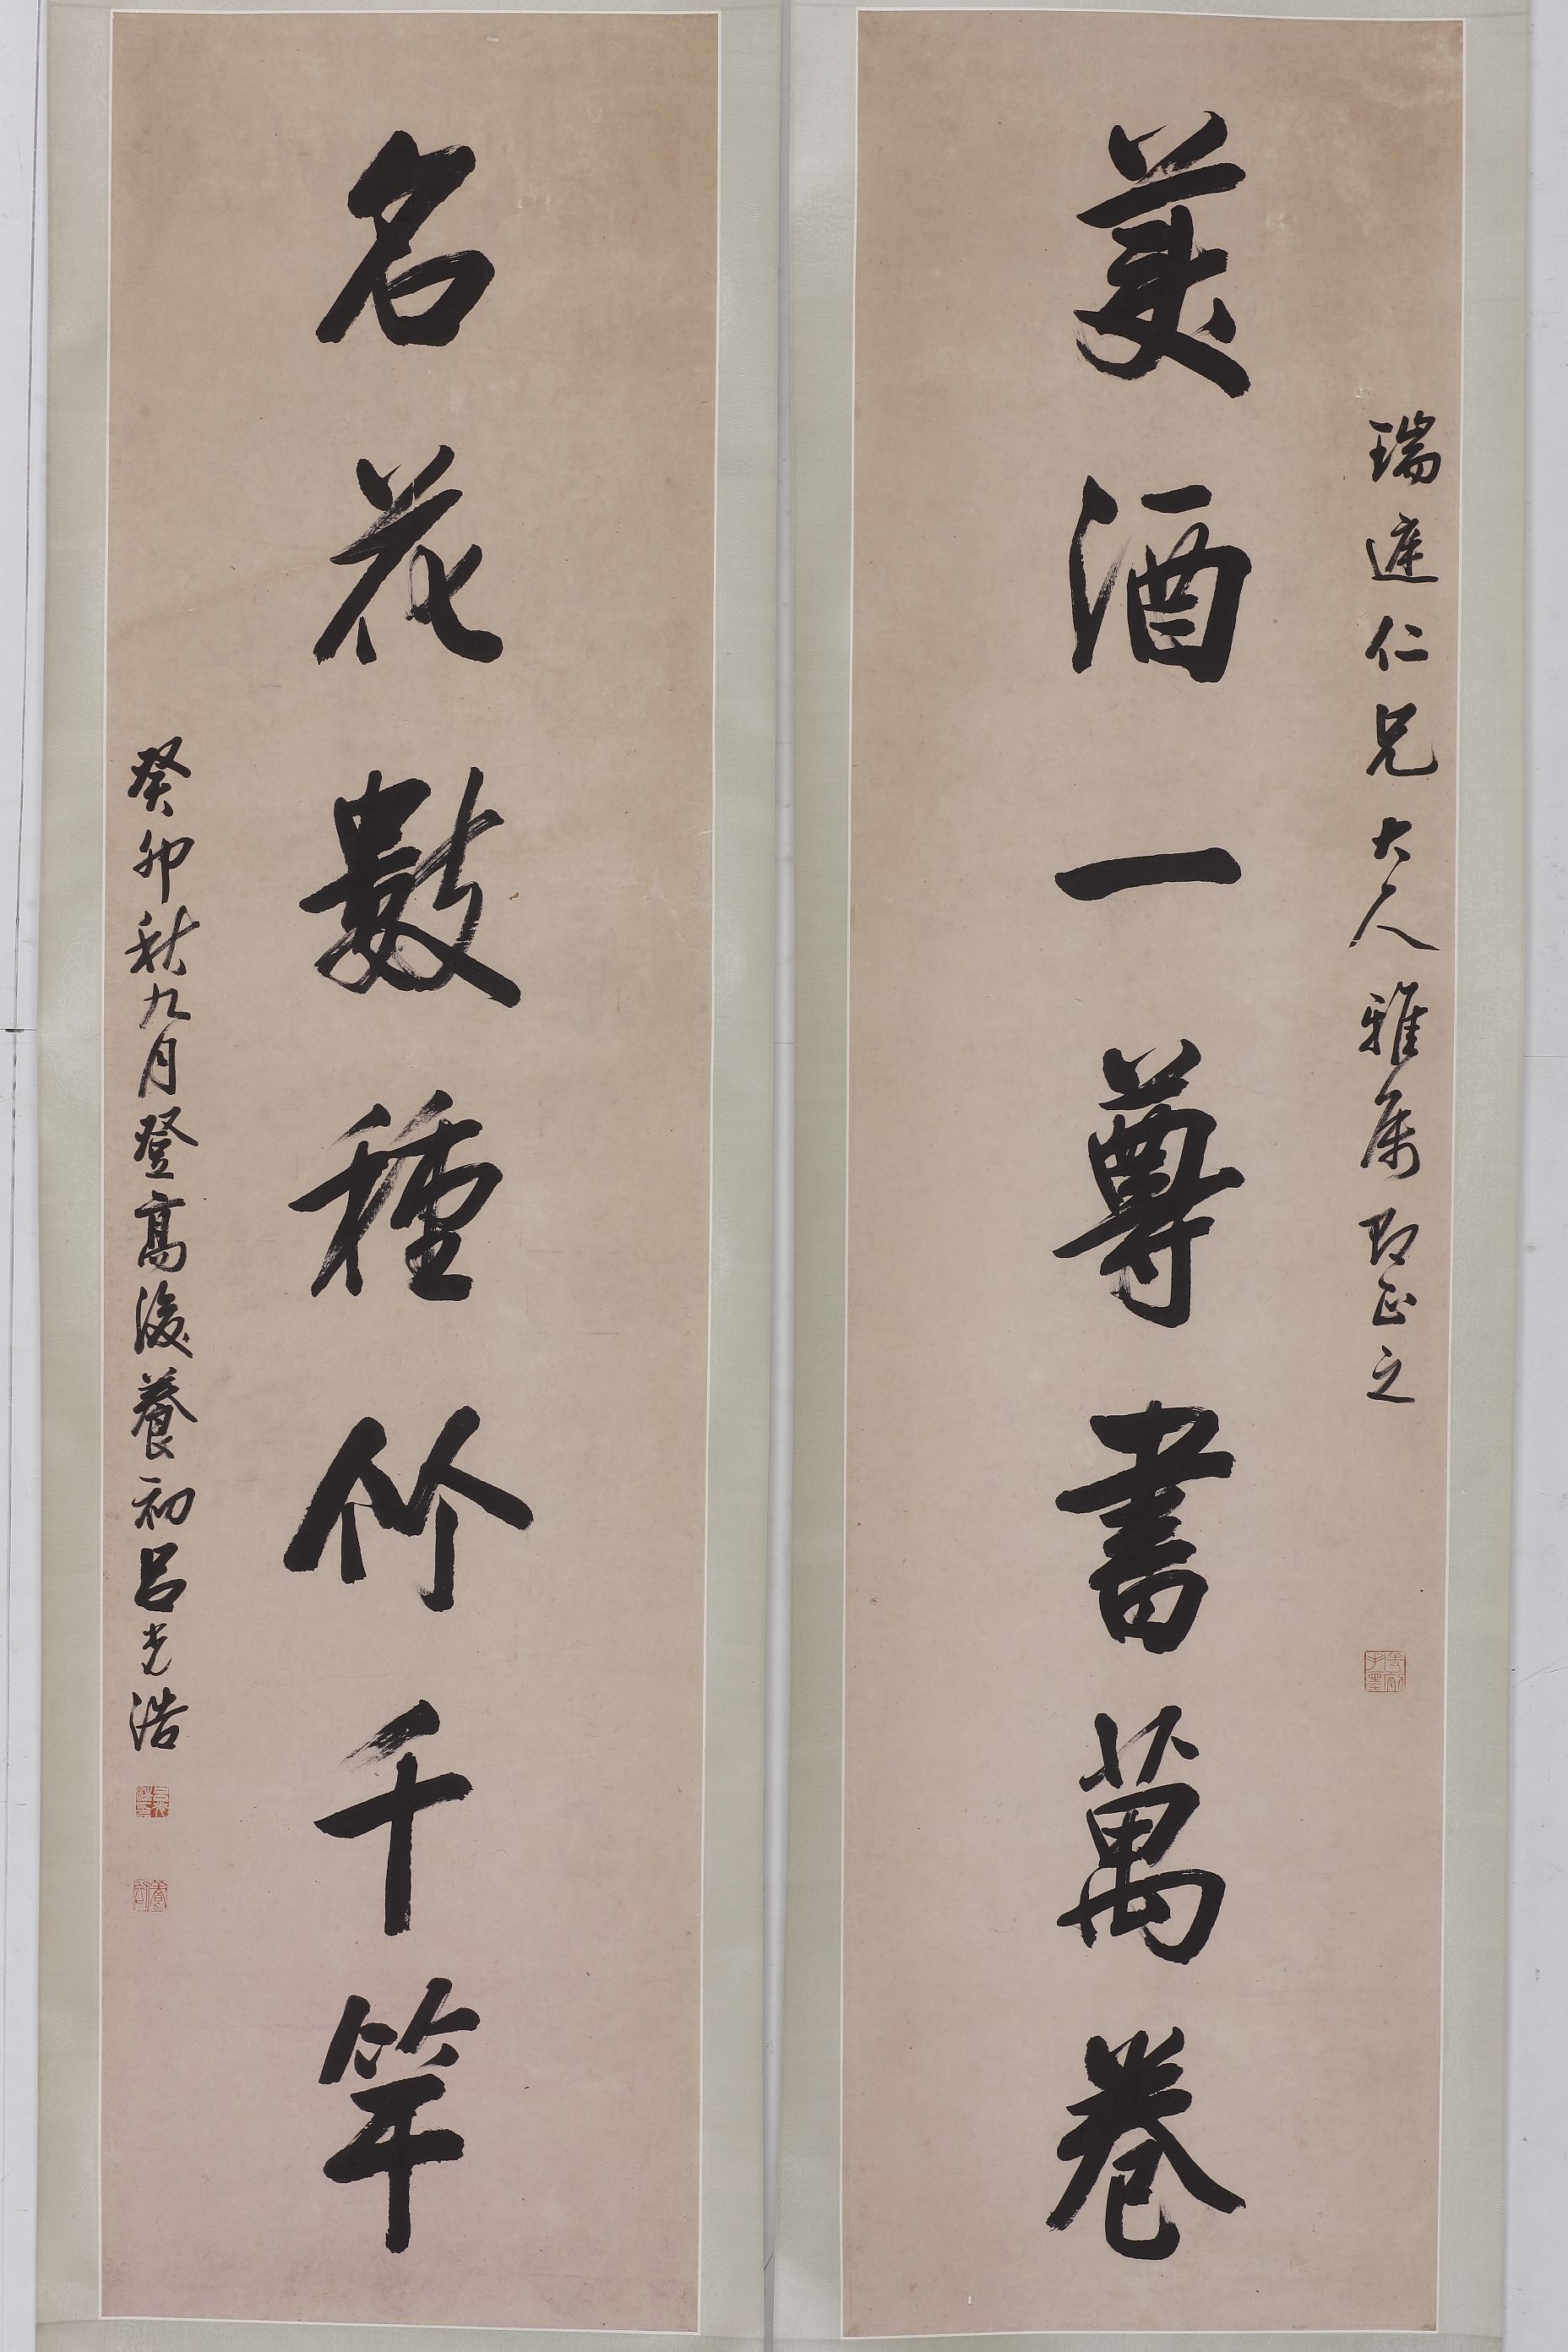 瑞遲仁兄大人雅屬即正之
美酒一尊書萬卷
名花數種竹千竿
癸卯秋九月登高後養初呂光浩